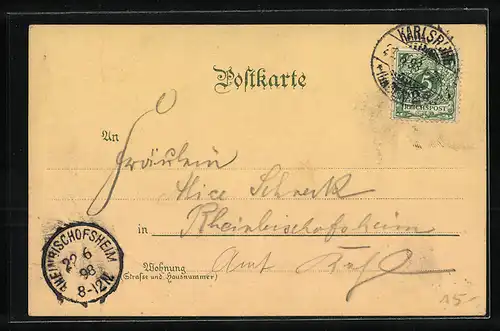 KARLSRUHE
Postkarte
5
REICHSPOST
An
Fräulein
Alice Schneck
in Rheinbischofsheim
Wohnung
(Straße und Hausnummer)
Amt Kehl
RHEINBISCHOFSHEIM
22 6
98
8-12V
15-